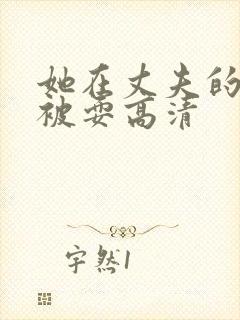 她在丈夫的
被耍高清
宇然1